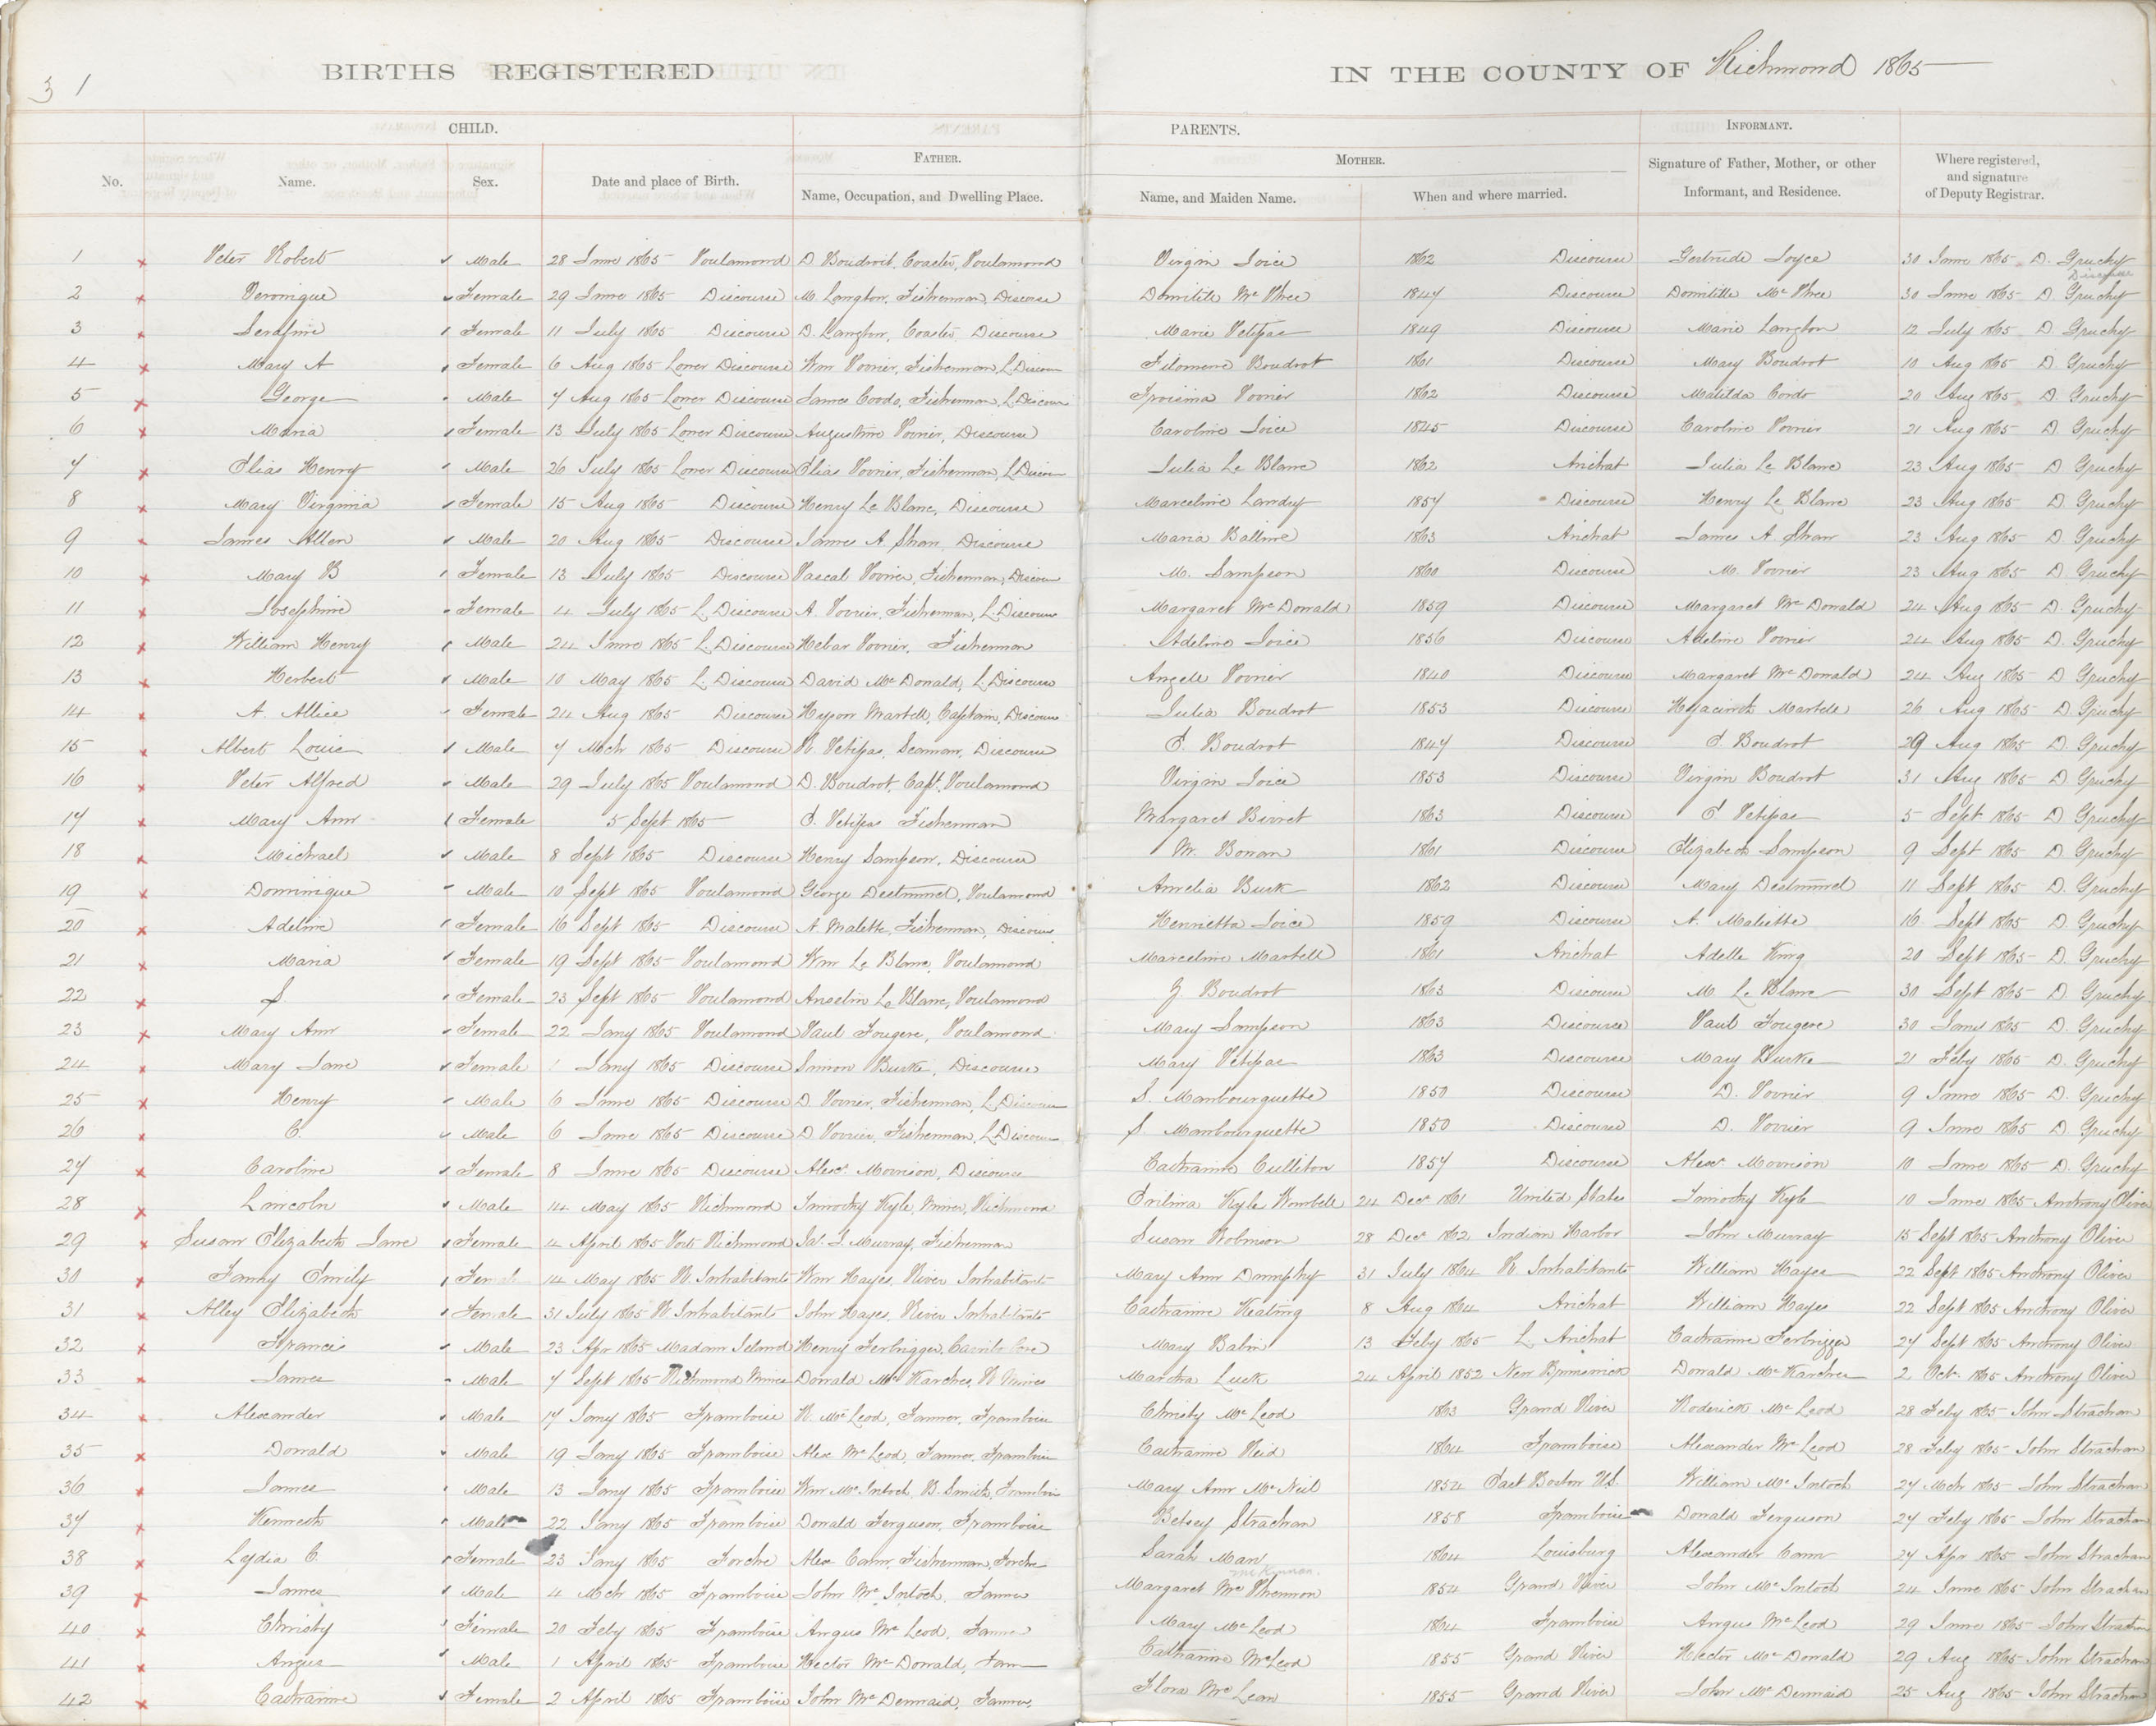 3 1
BIRTHS REGISTERED IN THE COUNTY OF Richmond 1865
CHILD. PARENTS. INFORMANT.
FATHER. MOTHER.
No. Name. Sex. Date and place of Birth. Name, Occupation, and Dwelling Place. Name, and Maiden Name. When and where married. Signature of Father, Mother, or other Informant, and Residence. Where registered, and signature of Deputy Registrar.
1 Peter Robert Male 28 June 1865 Poulamond D Boudroit, Coaster, Poulamond Virgin Joice 1862 Discouse Gertrude Joyce 30 June 1865 D. Gruchy
Discouse
2 Veronique Female 29 June 1865 Discouse M. Langton, Fisherman, Discouse Domitile McPhee 1847 Discouse Domitille McPhee 30 June 1865 D Gruchy
3 Serafine Female 11 July 1865 Discouse D. Langton, Coaster, Discouse Marie Petipas 1849 Discouse Marie Langton 12 July 1865 D. Gruchy
4 Mary A Female 6 Aug 1865 Lower Discouse Wm Poirier, Fisherman, L. Discous Filomene Boudrot 1861 Discouse Mary Boudrot 10 Aug 1865 D. Gruchy
5 George Male 7 Aug 1865 Lower Discouse James Coode, Fisherman, L. Discous Poirier 1862 Discouse Matilda 20 Aug 1865 D. Gruchy
6 Maria Female 13 July 1865 Lower Discouse Augustine Poirier, Discouse Caroline Joice 1845 Discouse Caroline Poirier 21 Aug 1865 D. Gruchy
7 Elias Henry Male 26 July 1865 Lower Discouse Elias Poirier, Fisherman, L. Discou Julia Le Blanc 1862 Arichat Julia Le Blanc 23 Aug 1865 D Gruchy
8 Mary Virginia Female 15 Aug 1865 Discouse Henry Le Blanc, Discouse Marceline Landry 1857 Discouse Henry Le Blanc 23 Aug 1865 D. Gruchy
9 James Allen Male 20 Aug 1865 Discouse James A. Shaw, Discouse Maria Balline 1863 Arichat James A. Shaw 23 Aug 1865 D. Gruchy
10 Mary B Female 13 July 1865 Discouse Pascal Poirier, Fisherman, Discou M. Sampson 1860 Discouse M. Poirier 23 Aug 1865 D. Gruchy
11 Josephine Female 4 July 1865 L. Discouse A. Poirier, Fisherman, L. Discous Margaret McDonald 1859 Discouse Margaret McDonald 24 Aug 1865 D. Gruchy
12 William Henry Male 24 June 1865 L. Discouse Hebar Poirier, Fisherman Adeline Joice 1856 Discouse Adeline Poirier 24 Aug 1865 D. Gruchy
13 Herbert Male 10 May 1865 L. Discouse David McDonald, L. Discouse Angele Poirier 1840 Discouse Margaret McDonald 24 Aug 1865 D Gruchy
14 A. Allice Female 24 Aug 1865 Discouse Martell, Captain, Discous Julia Boudrot 1853 Discouse Hyacinth Martell 26 Aug 1865 D. Gruchy
15 Albert Louis Male 7 Mch 1865 Discouse R. Petipas, Seaman, Discouse E. Boudrot 1847 Discouse E. Boudrot 29 Aug 1865 D. Gruchy
16 Peter Alfred Male 29 July 1865 Poulamond D. Boudrot, Capt, Poulamond Virgin Joice 1853 Discouse Virgin Boudrot 31 Aug 1865 D. Gruchy
17 Mary Ann Female 5 Sept 1865 E. Petipas Fisherman Margaret 1863 Discouse E Petipas 5 Sept 1865 D. Gruchy
18 Michael Male 8 Sept 1865 Discouse Henry Sampson, Discouse M. Bonan 1861 Discouse Elizabeth Sampson 9 Sept 1865 D. Gruchy
19 Dominique Male 10 Sept 1865 Poulamond George, Poulamond Amelia Burk 1862 Discouse Mary 11 Sept 1865 D. Gruchy
20 Adeline Female 16 Sept 1865 Discouse A Malette, Fisherman, Discous Henrietta Joice 1859 Discouse A. Maliette 16 Sept 1865 D. Gruchy
21 Maria Female 19 Sept 1865 Poulamond Wm Le Blanc, Poulamond Marceline Martell 1861 Arichat Adelle King 20 Sept 1865 D. Gruchy
22 S Female 23 Sept 1865 Poulamond Anselm Le Blanc, Poulamond Z Boudrot 1863 Discouse M. Le Blanc 30 Sept 1865 D. Gruchy
23 Mary Ann Female 22 Jany 1865 Poulamond Paul Fougere, Poulamond Mary Sampson 1863 Discouse Paul Fougere 30 Jany 1865 D. Gruchy
24 Mary Jane Female 1 Jany 1865 Discouse Simon Burke, Discouse Mary Petipas 1863 Discouse Mary Burke 21 Feby 1865 D. Gruchy
25 Henry Male 6 June 1865 Discouse D. Poirier, Fisherman, L. Discous S. Mambourquette 1850 Discouse D. Poirier 9 June 1865 D. Gruchy
26 C. Male 6 June 1865 Discouse D Poirier, Fisherman, L. Discous S. Mambourquette 1850 Discouse D. Poirier 9 June 1865 D. Gruchy
27 Caroline Female 8 June 1865 Discouse Alexr Morrison, Discouse Catharine Culliton 1857 Discouse Alexr Morrison 10 June 1865 D. Gruchy
28 Lincoln Male 14 May 1865 Richmond Timothy Kyle, Miner, Richmond Kyle 24 Decr 1861 United States Timothy Kyle 10 June 1865 Anthony Oliver
29 Susan Elizabeth Jane Female 4 April 1865 Port Richmond Jas. S. Murray, Fisherman Susan Robinson 28 Decr 1862 Indian Harbor John Murray 15 Sept 1865 Anthony Oliver
30 Fanny Emily Female 14 May 1865 R. Inhabitants Wm Hayes, River Inhabitants Mary Ann Dumphy 31 July 1864 R Inhabitants William Hayes 22 Sept 1865 Anthony Oliver
31 Alley Elizabeth Female 31 July 1865 R Inhabitants John Hayes, River Inhabitants Catharine Keating 8 Aug 1864 Arichat William Hayes 22 Sept 1865 Anthony Oliver
32 Francis Male 23 Apr 1865 Madam Island Henry Ferbrigger, Cove Mary Babin 13 Feby 1865 L. Arichat Catharine Ferbrigger 27 Sept 1865 Anthony Oliver
33 James Male 7 Sept 1865 Richmond Mines Donald McKarcher, R Mines Martha Lusk 24 April 1852 New Brunswick Donald McKarcher 2 Octr. 1865 Anthony Oliver
34 Alexander Male 17 Jany 1865 Framboise R. McLeod, Farmer, Framboise Christy McLeod 1863 Grand River Roderick McLeod 28 Feby 1865 John Strachan
35 Donald Male 19 Jany 1865 Framboise Alex McLeod, Farmer, Framboise Catharine Reid 1864 Framboise Alexander McLeod 28 Feby 1865 John Strachan
36 James Male 13 Jany 1865 Framboise Wm McIntosh, B. Smith, Framboise Mary Ann McNeil 1854 East Boston U.S. William McIntosh 27 Mch 1865 John Strachan
37 Kenneth Male 22 Jany 1865 Framboise Donald Ferguson, Framboise Betsey Strachan 1858 Framboise Donald Ferguson 27 Feby 1865 John Strachan
38 Lydia C. Female 23 Jany 1865 Forche Alex Cann, Fisherman, Forche Sarah Man 1864 Louisburg Alexander Cann 27 Apr 1865 John Strachan
McKinnon.
39 James Male 4 Mch 1865 Framboise John McIntosh, Farmer Margaret McPhennon 1854 Grand River John McIntosh 24 June 1865 John Strachan
40 Christy Female 20 Feby 1865 Framboise Angus McLeod, Farmer Mary McLeod 1864 Framboise Angus McLeod 29 June 1865 John Strachan
41 Angus Male 1 April 1865 Framboise Hector McDonald, Farm Catharine McLeod 1855 Grand River Hector McDonald 29 Aug 1865 John Strachan
42 Catharine Female 2 April 1865 Framboise John McDermaid, Farmer, Flora McLean 1855 Grand River John McDermaid 25 Aug 1865 John Strachan